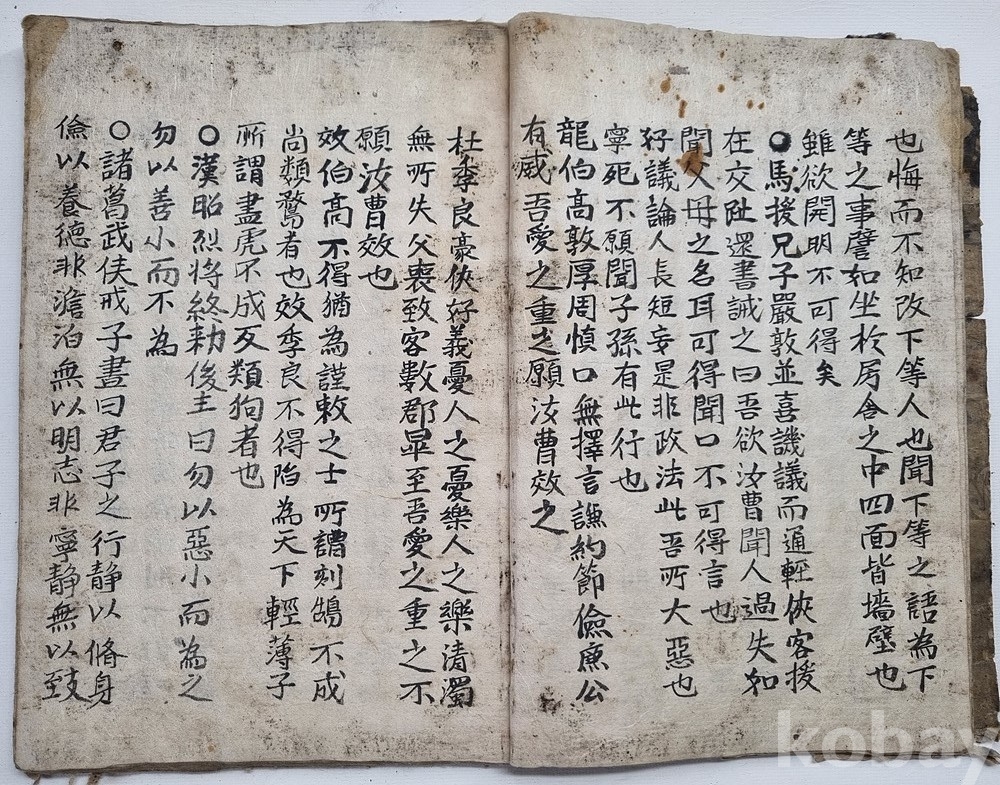 也悔而不知改下等人也聞下等之語為下
等之事譬如坐於房舍之中四面皆墻壁也
雖欲開明不可得矣
○馬援兄子嚴敦並喜譏議而通輕俠客援
在交趾還書誡之曰吾欲汝曹聞人過失如
聞父母之名耳可得聞口不可得言也
好議論人長短妄是非政法此吾所大惡也
寧死不願聞子孫有此行也
龍伯高敦厚周慎口無擇言謙約節儉廉公
有威吾愛之重之願汝曹效之
杜季良豪俠好義憂人之憂樂人之樂清濁
無所失父喪致客數郡畢至吾愛之重之不
願汝曹效也
效伯高不得猶為謹敕之士所謂刻鵠不成
尚類鶩者也效季良不得陷為天下輕薄子
所謂畫虎不成反類狗者也
○漢昭烈將終勅後主曰勿以惡小而為之
勿以善小而不為
○諸葛武侯戒子書曰君子之行靜以脩身
儉以養德非澹泊無以明志非寧静無以致
kobay